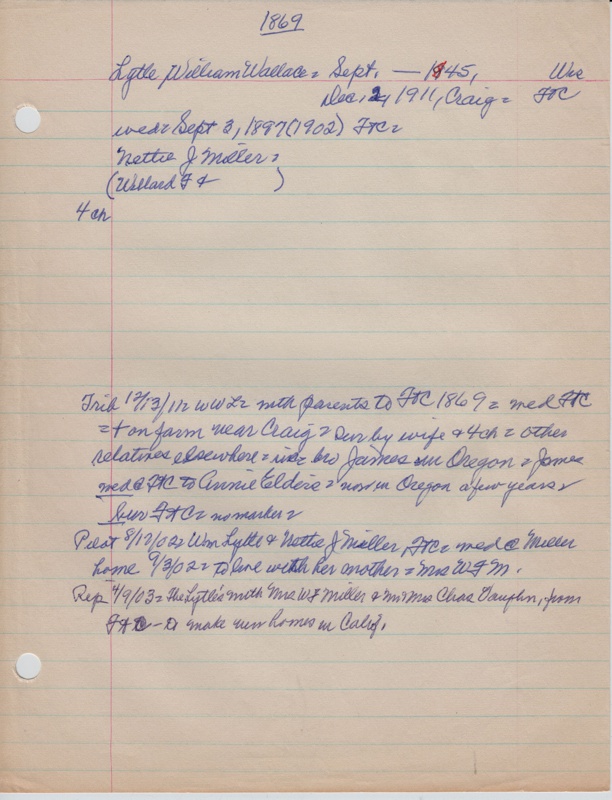 1869
Lytle William Wallace = Sept. — 1845, Wis
Dec. 2, 1911, Craig = FtC
wed = Sept 3, 1897 (1902) FtC =
Nettie J Miller =
(Willard F & )
4 ch
Trib 12/13/11 = WWL = with parents to FtC 1869 = wed FtC
= & on farm near Craig = sur by wife & 4 ch = other
relatives elsewhere = = bro James in Oregon = James
wed @ FtC to Annie Elders = now in Oregon a few years =
bur FtC = no marker =
Pilot 8/17/02 = Wm Lytle & Nettie J Miller, FtC = wed @ Miller
home 9/3/02 = to live with her mother = Mrs W F M.
Rep 4/9/03 = the Lytle's with Mrs W F Miller & Mr Mrs Chas Vaughn, from
FtC - to make new homes in Calif.